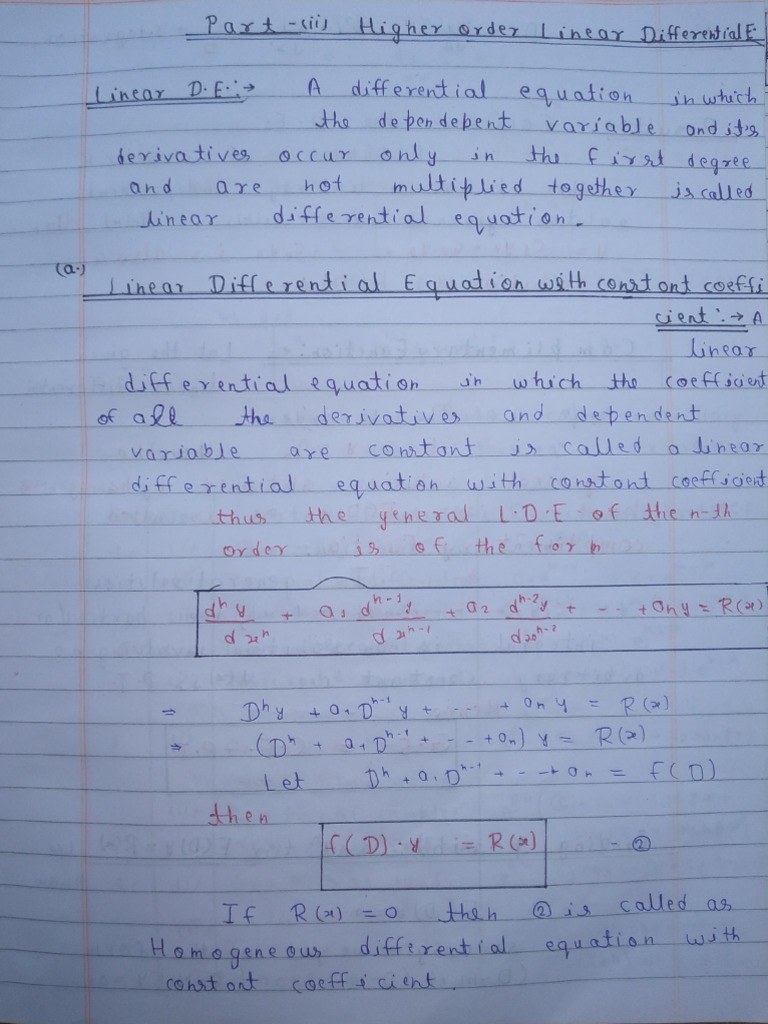 Part-(ii) Higher order Linear Differential E.
Linear D.E.:→ A differential equation in which
the dependepent variable and it's
derivatives occur only in the first degree
and are not multiplied together is called
linear differential equation.
(a.) Linear Differential Equation with constant coeffi
cient:→ A
linear
differential equation in which the coefficient
of all the derivatives and dependent
variable are constant is called a linear
differential equation with constant coefficient
thus the general L.D.E of the n-th
order is of the form
dⁿy/dxⁿ + a₁ dⁿ⁻¹y/dxⁿ⁻¹ + a₂ dⁿ⁻²y/dxⁿ⁻² + -- + any = R(x)
⇒ Dⁿy + a₁Dⁿ⁻¹y + --- + any = R(x)
⇒ (Dⁿ + a₁Dⁿ⁻¹ + -- + an) y = R(x)
Let Dⁿ + a₁Dⁿ⁻¹ + - - + an = f(D)
then
f(D)·y = R(x) - ②
If R(x) = 0 then ② is called as
Homogeneous differential equation with
constant coefficient.